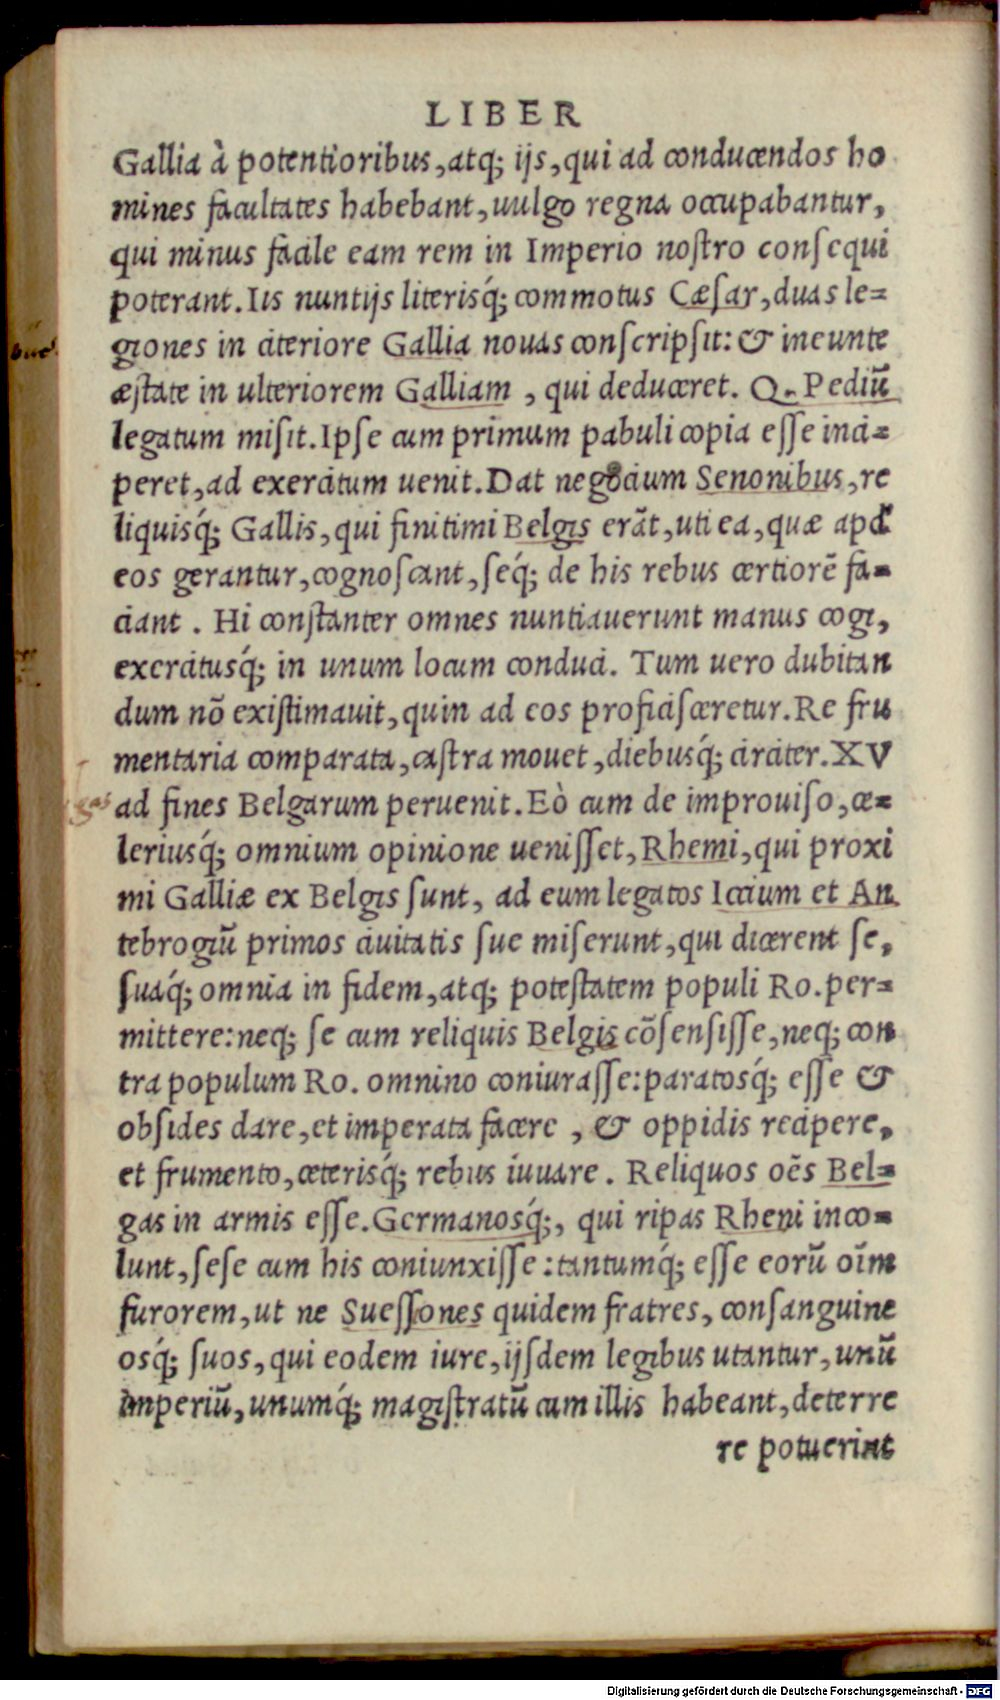 LIBER
Gallia à potentioribus, atq; ijs, qui ad conducendos ho
mines facultates habebant, uulgo regna occupabantur,
qui minus facile eam rem in Imperio nostro consequi
poterant. Iis nuntijs literisq́; commotus Cæsar, duas le=
giones in citeriore Gallia nouas conscripsit: & ineunte
æstate in ulteriorem Galliam , qui deduceret. Q. Pediũ
legatum misit. Ipse cum primum pabuli copia esse inci=
peret, ad exercitum uenit. Dat negocium Senonibus, re
liquisq́; Gallis, qui finitimi Belgis erãt, uti ea, quæ apd'
eos gerantur, cognoscant, seq́; de his rebus certiorẽ fa=
ciant . Hi constanter omnes nuntiauerunt manus cogi,
exercitusq́; in unum locum conduci. Tum uero dubitan
dum nõ existimauit, quin ad eos proficisceretur. Re fru
mentaria comparata, castra mouet, diebusq́; circiter. XV
ad fines Belgarum peruenit. Eò cum de improuiso, ce=
leriusq́; omnium opinione uenisset, Rhemi, qui proxi
mi Galliæ ex Belgis sunt, ad eum legatos Iccium et An
tebrogiũ primos ciuitatis sue miserunt, qui dicerent se,
suaq́; omnia in fidem, atq; potestatem populi Ro. per=
mittere: neq; se cum reliquis Belgis cõsensisse, neq; con
tra populum Ro. omnino coniurasse: paratosq́; esse &
obsides dare, et imperata facere , & oppidis recipere,
et frumento, ceterisq́; rebus iuuare . Reliquos oẽs Bel=
gas in armis esse. Germanosq́;, qui ripas Rheni inco=
lunt, sese cum his coniunxisse: tantumq́; esse eorũ oĩm
furorem, ut ne Suessones quidem fratres, consanguine
osq́; suos, qui eodem iure, ijsdem legibus utantur, unũ
imperiũ, unumq́; magistratũ cum illis habeant, deterre
re potuerint
Digitalisierung gefördert durch die Deutsche Forschungsgemeinschaft - DFG